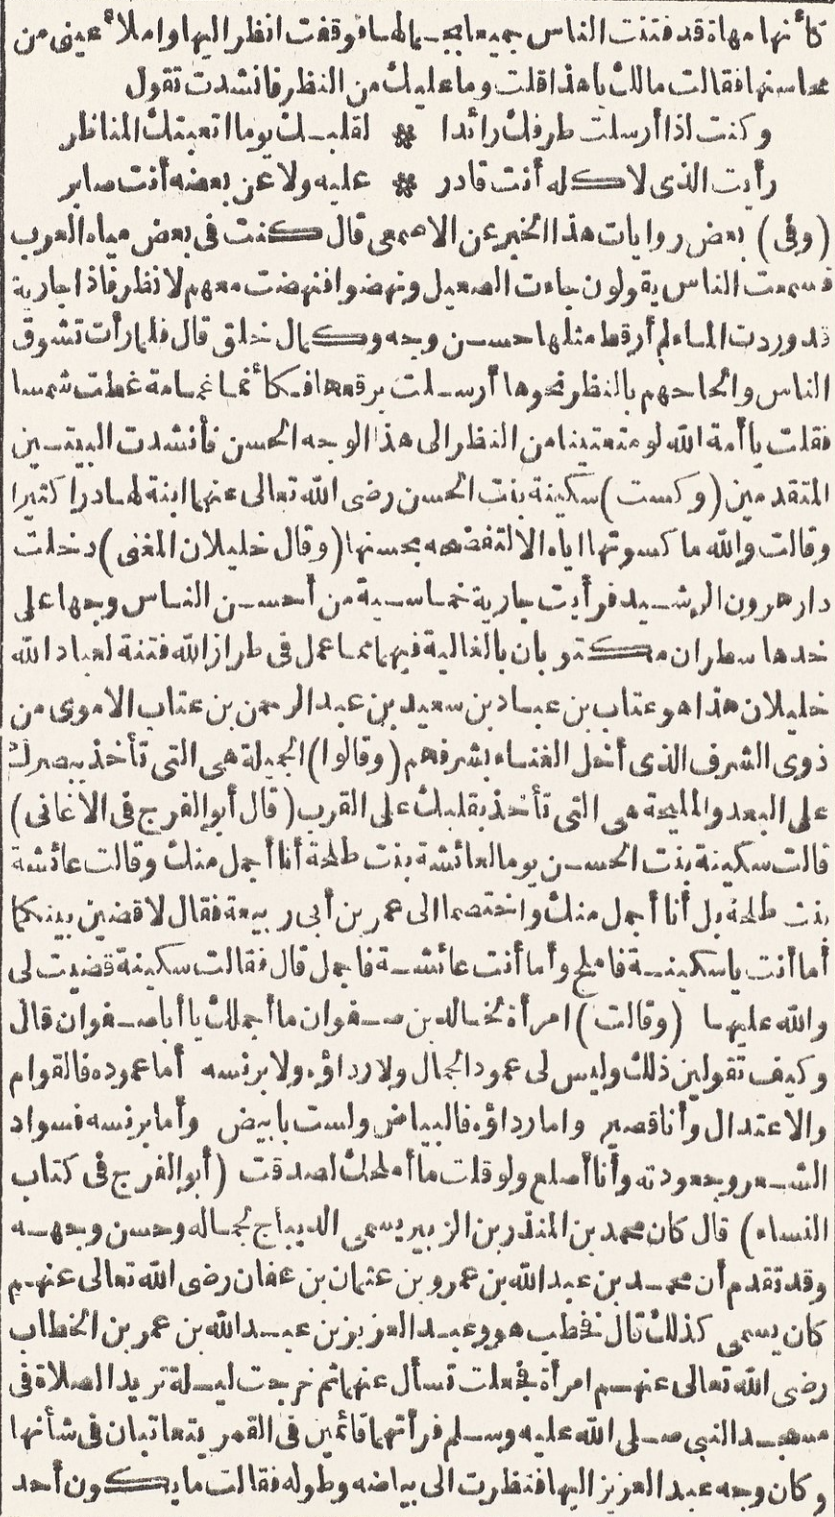 كأنها مهاة قد فتنت الناس جميعا بجمالها فوقفت انظر اليها واملأ عينى من
محاسنها فقالت مالك ياهذا قلت وما عليك من النظر فانشدت تقول
وكنت اذا أرسلت طرفك رائدا ❋ لقلبك يوما اتعبتك المناظر
رأيت الذى لا كله أنت قادر ❋ عليه ولا عن بعضه أنت صابر
(وفى) بعض روايات هذا الخبر عن الاصمعى قال كنت فى بعض مياه العرب
فسمعت الناس يقولون جاءت الصعيل ونهضوا فنهضت معهم لانظر فاذا جارية
قد وردت الماء لم أر قط مثلها حسن وجه وكمال خلق قال فلما رأت تشوق
الناس والحاحهم بالنظر نحوها أرسلت برقعها فكأنما غمامة غطت شمسا
فقلت يا أمة الله لو متعتينا من النظر الى هذا الوجه الحسن فأنشدت البيتين
المتقدمين (وكست) سكينة بنت الحسن رضى الله تعالى عنهما ابنة لها درا كثيرا
وقالت والله ما كسوتها اياه الا لتفضحه بحسنها (وقال خليلان المغنى) دخلت
دار هرون الرشيد فرأيت جارية خماسية من أحسن الناس وجها على
خدها سطران مكتوبان بالغالية فيهما مما عمل فى طراز الله فتنة لعباد الله
خليلان هذا هو عتاب بن عباد بن سعيد بن عبد الرحمن بن عتاب الاموى من
ذوى الشرف الذى أخمل الغناء بشرفهم (وقالوا) الجميلة هى التى تأخذ ببصرك
على البعد والمليحة هى التى تأخذ بقلبك على القرب (قال أبو الفرج فى الأغانى)
قالت سكينة بنت الحسن يوما لعائشة بنت طلحة أنا أجمل منك وقالت عائشة
بنت طلحة بل أنا أجمل منك واختصما الى عمر بن أبى ربيعة فقال لاقضين بينكما
أما أنت ياسكينة فاملح وأما أنت عائشة فاجمل قال فقالت سكينة قضيت لى
والله عليها (وقالت) امرأة لخالد بن صفوان ما أجملك يا أبا صفوان قال
وكيف تقولين ذلك وليس لى عمود الجمال ولا رداؤه ولا برنسه أما عموده فالقوام
والاعتدال وأنا قصير واما رداؤه فالبياض ولست بابيض وأما برنسه فسواد
الشعر وجعودته وأنا أصلع ولو قلت ما أملحك لصدقت (أبو الفرج فى كتاب
النساء) قال كان محمد بن المنذر بن الزبير يسمى الديباج لجماله وحسن وجهه
وقد تقدم أن محمد بن عبد الله بن عمرو بن عثمان بن عفان رضى الله تعالى عنهم
كان يسمى كذلك قال فخطب هو وعبد العزيز بن عبد الله بن عمر بن الخطاب
رضى الله تعالى عنهم امرأة فجعلت تسأل عنهما ثم خرجت ليلة تريد الصلاة فى
مسجد النبى صلى الله عليه وسلم فرأتهما قائمين فى القمر يتعاتبان فى شأنها
وكان وجه عبد العزيز اليها فنظرت الى بياضه وطوله فقالت ما يكون أحد